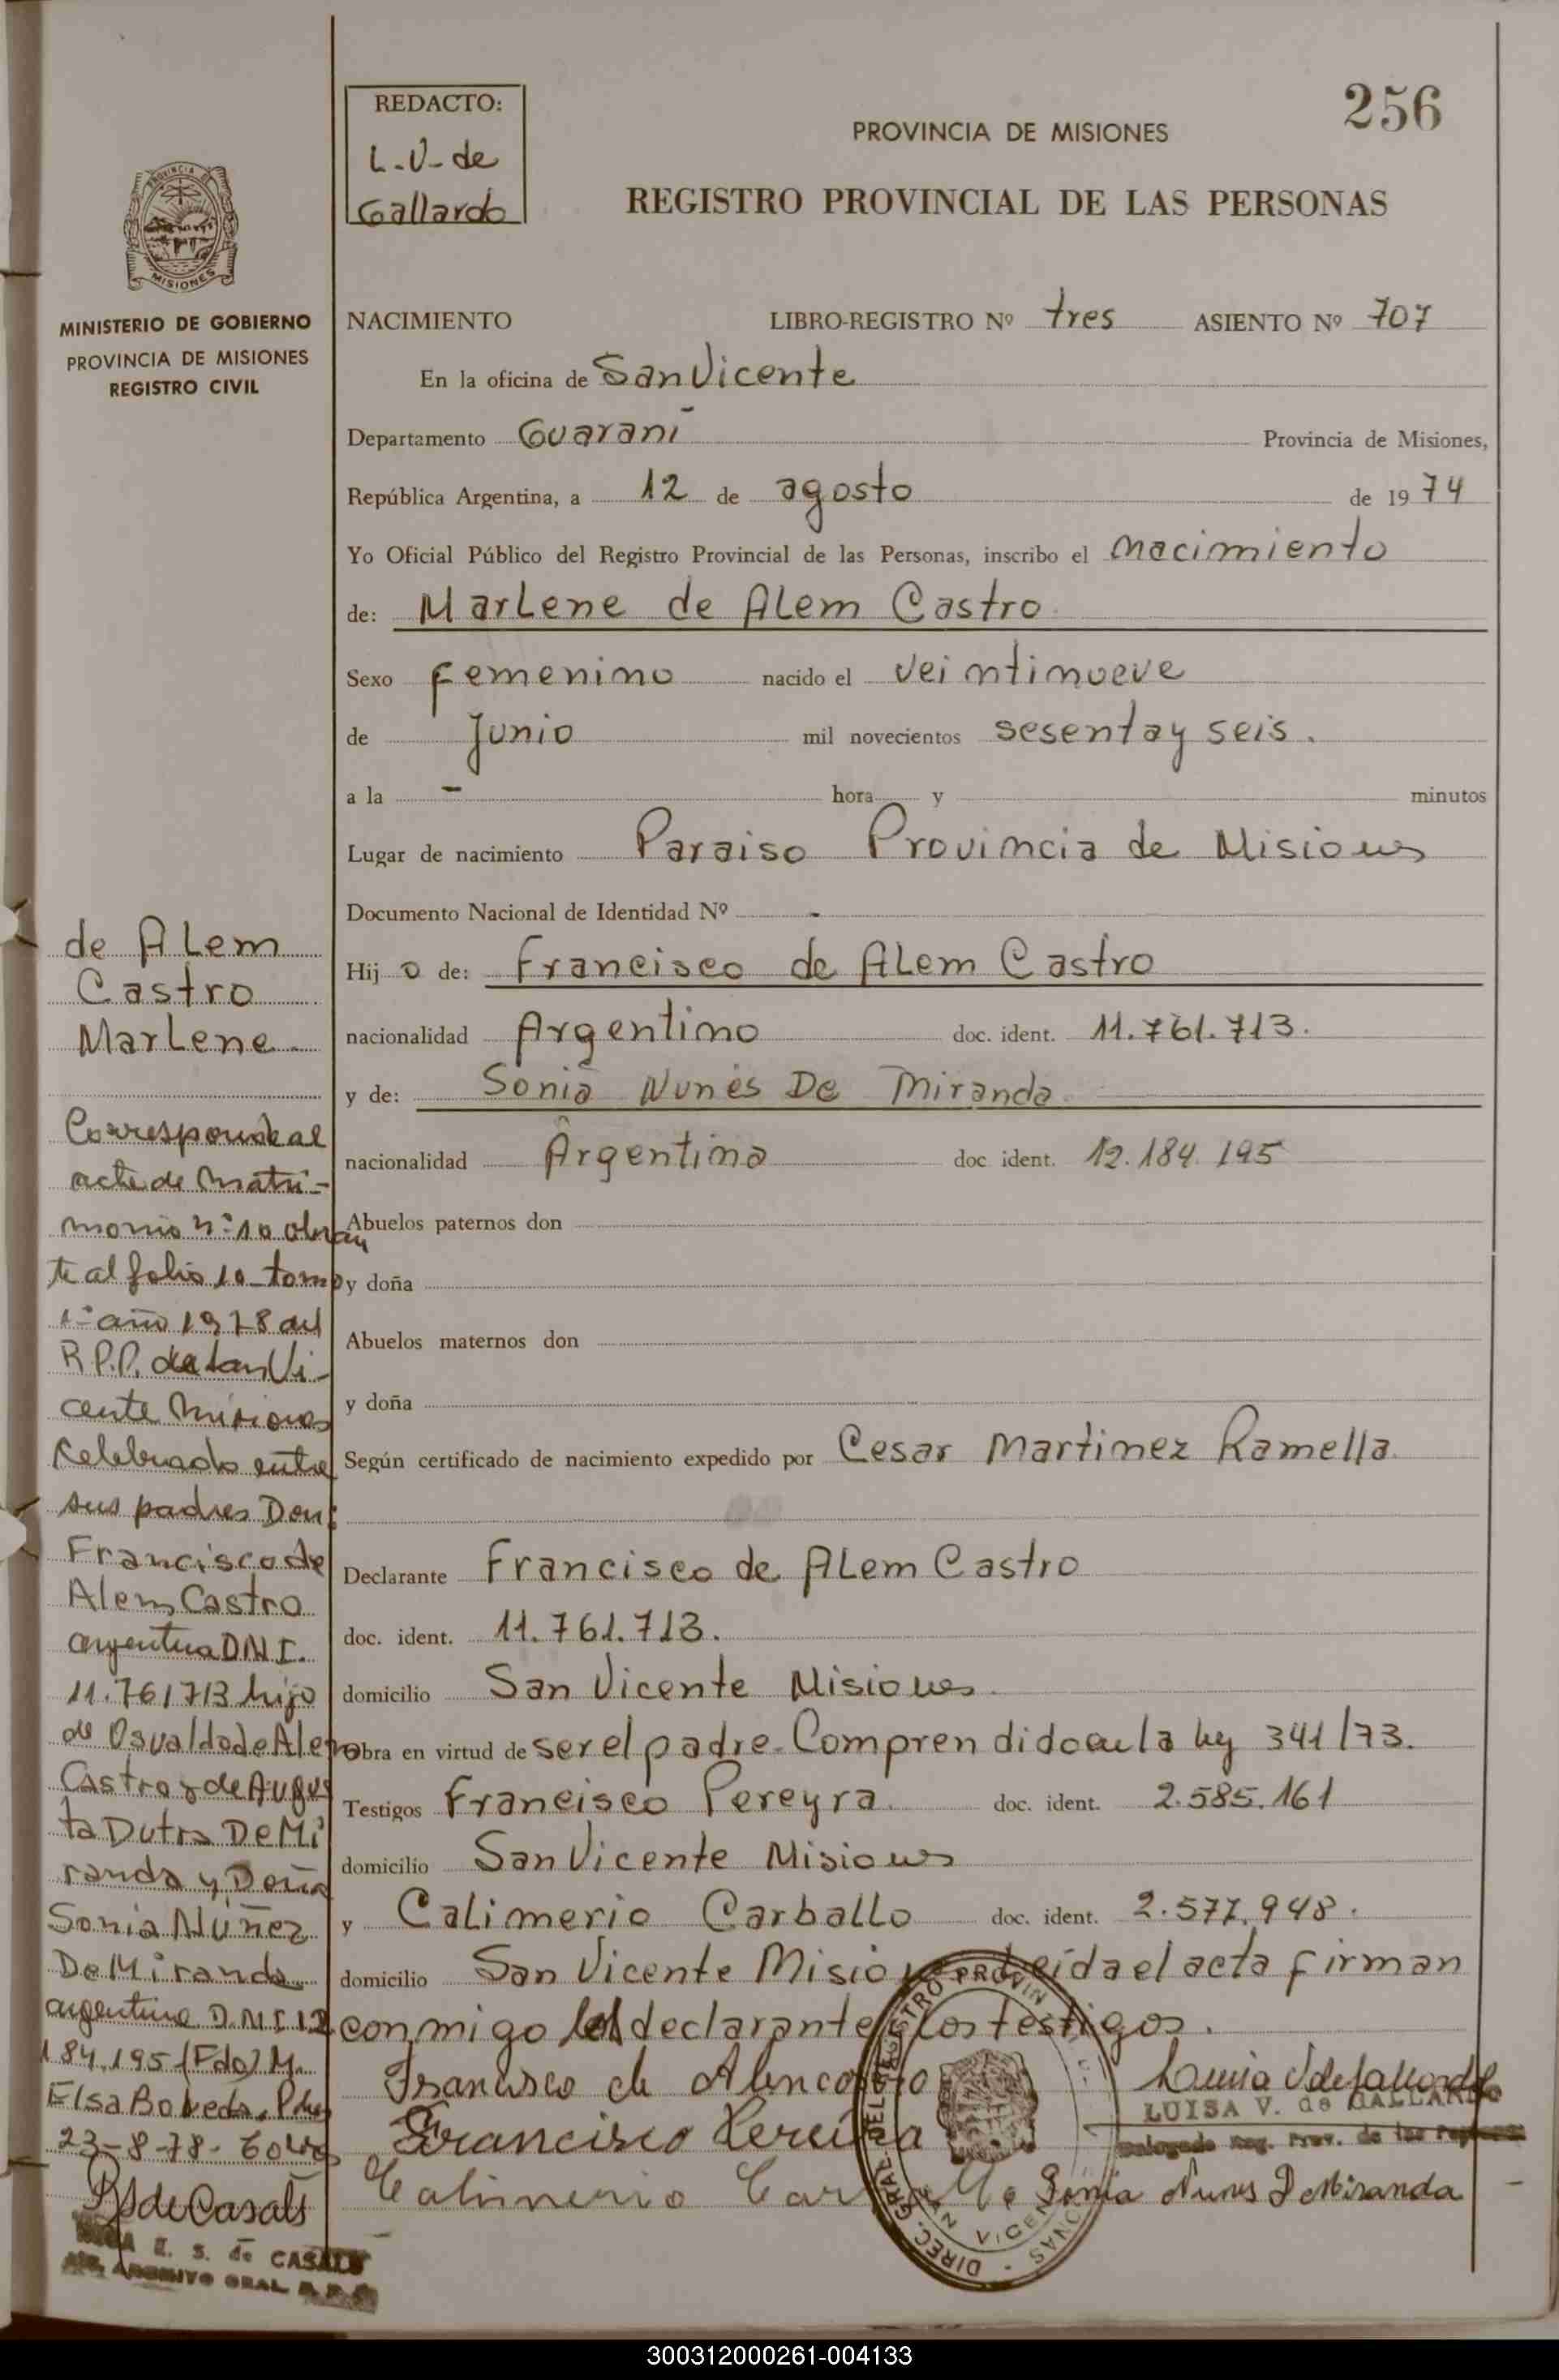 256
REDACTO:
L-V-de
Gallardo
PROVINCIA DE MISIONES
REGISTRO PROVINCIAL DE LAS PERSONAS
PROVINCIA DE
MISIONES
MINISTERIO DE GOBIERNO
PROVINCIA DE MISIONES
REGISTRO CIVIL
NACIMIENTO LIBRO-REGISTRO Nº tres ASIENTO Nº 707
En la oficina de San Vicente
Departamento Guarani Provincia de Misiones,
República Argentina, a 12 de agosto de 1974
Yo Oficial Público del Registro Provincial de las Personas, inscribo el nacimiento
de: Marlene de Alem Castro
Sexo femenino nacido el veintinueve
de Junio mil novecientos sesenta y seis.
a la - hora y minutos
Lugar de nacimiento Paraiso Provincia de Misiones
Documento Nacional de Identidad Nº -
Hijo de: Francisco de Alem Castro
nacionalidad Argentino doc. ident. 11.761.713.
y de: Sonia Nunes De Miranda
nacionalidad Argentina doc ident. 12.184.195
Abuelos paternos don
y doña
Abuelos maternos don
y doña
Según certificado de nacimiento expedido por Cesar Martinez Ramella
Declarante Francisco de Alem Castro
doc. ident. 11.761.713.
domicilio San Vicente Misiones
obra en virtud de ser el padre. Comprendido en la ley 341/73.
Testigos Francisco Pereyra doc. ident. 2.585.161
domicilio San Vicente Misiones
y Calimerio Carballo doc. ident. 2.577.948.
domicilio San Vicente Misiones leída el acta firman
conmigo el declarante y los testigos.
Francisco de Alencastro
Francisco Pereira
Calimerio
LUISA V. de GALLARDO
Delegada Reg. Prov. de las Personas
Sonia Nunes De Miranda
de Alem
Castro
Marlene
Corresponde al
acta de Matri-
monio nº 10 obran
te al folio 10 tomo
1º año 1978 del
R.P.P. de San Vi-
cente Misiones
Celebrado entre
sus padres Don:
Francisco de
Alem Castro
argentino D.N.I.
11.761713 hijo
de Osvaldo de Alem
Castro y de Augus
ta Dutra De Mi
randa y Doña
Sonia Núñez
De Miranda
argentina D.N.I 12
184.195 (Fdo) M.
Elsa Boveda,
23-8-78-
de Casals
E. S. de CASALS
ARCHIVO GRAL R.P.P.
300312000261-004133